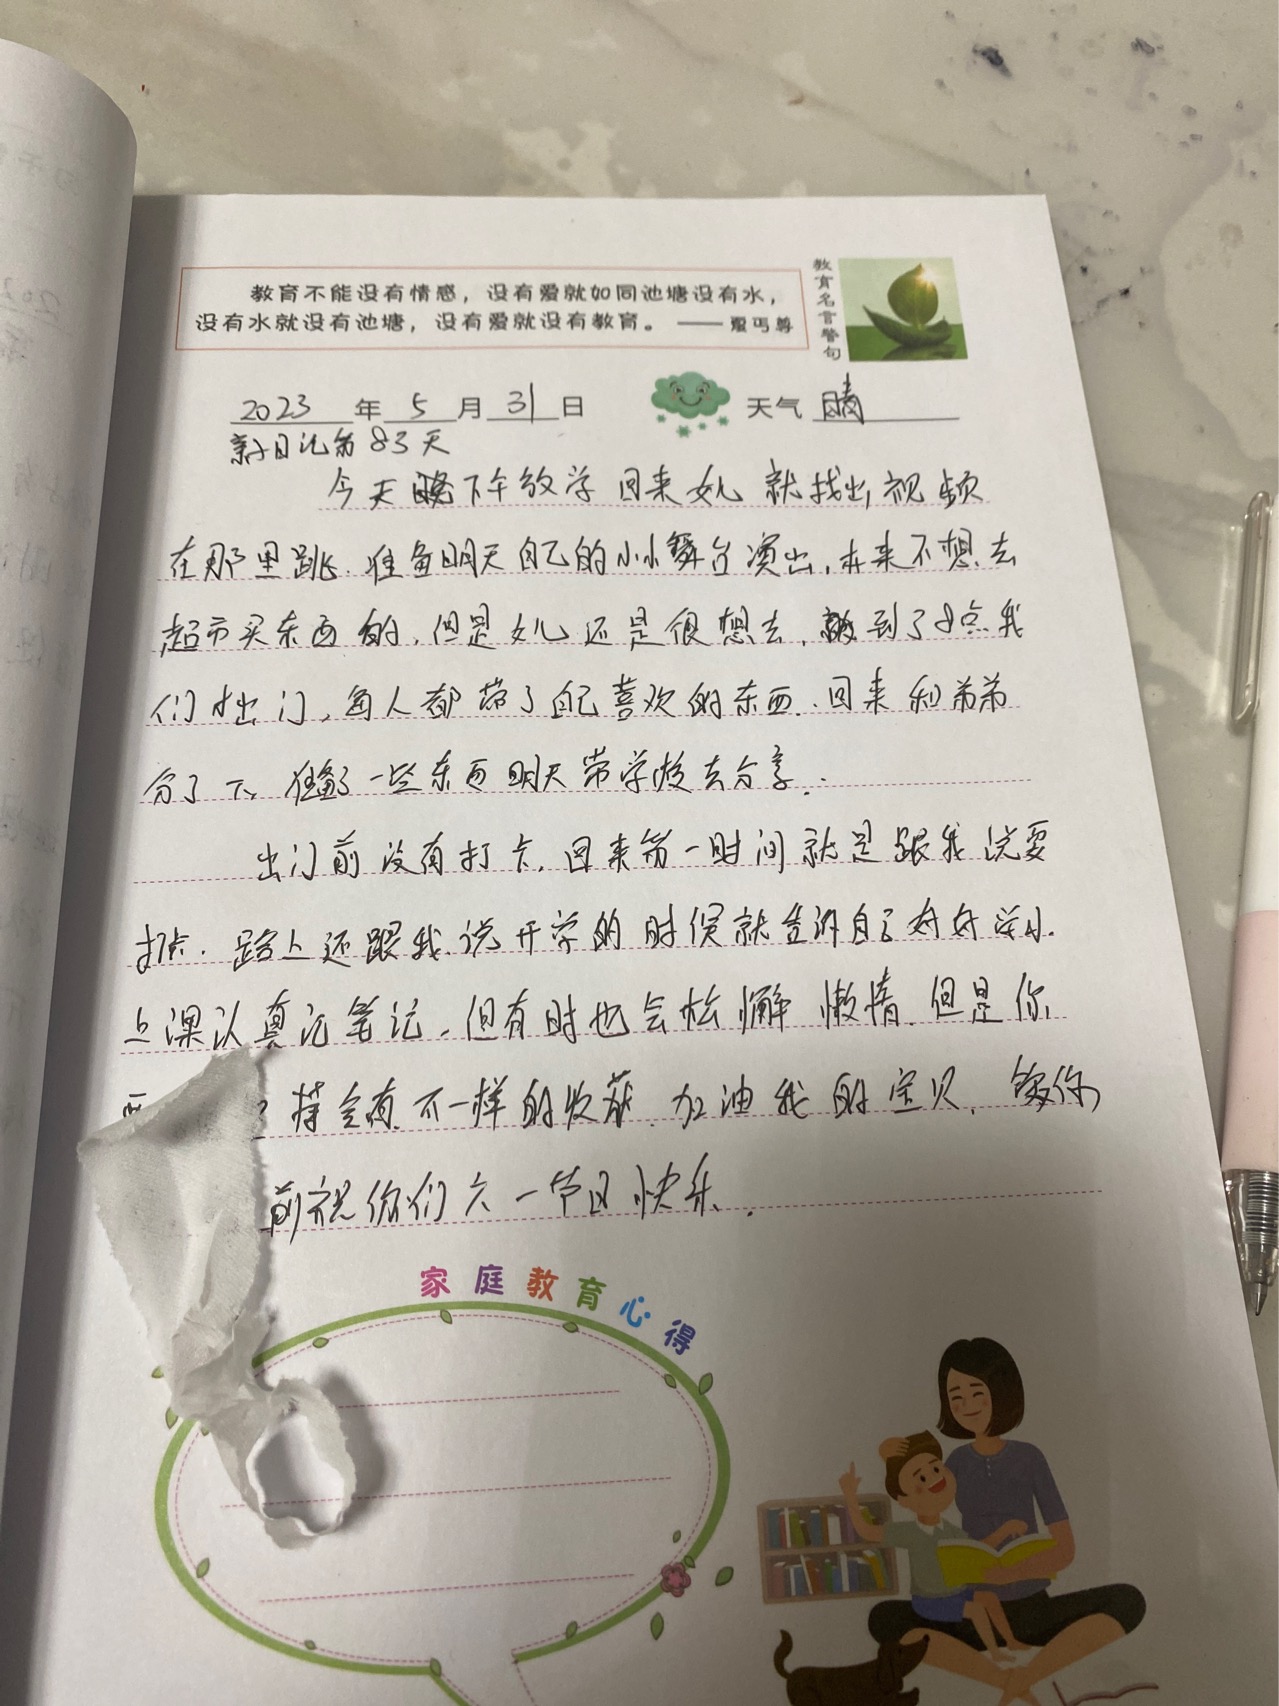 教育不能没有情感，没有爱就如同池塘没有水，
没有水就没有池塘，没有爱就没有教育。——夏丏尊
教育名言警句
2023年5月31日 天气 晴
亲子日记第83天
今天下午放学回来女儿就找出视频
在那里跳.准备明天自己的小小舞台演出,本来不想去
超市买东西的,但是女儿还是很想去,到了8点我
们才出门,每人都带了自己喜欢的东西.回来和弟弟
分了下、准备了一些东西明天带学校去分享.
出门前没有打卡,回来第一时间就是跟我说要
打卡.路上还跟我说开学的时候就告诉自己好好学习.
上课认真记笔记,但有时也会松懈懒惰.但是你
持会有不一样的收获.加油我的宝贝.
前祝你们六一节日快乐.
家庭教育心得